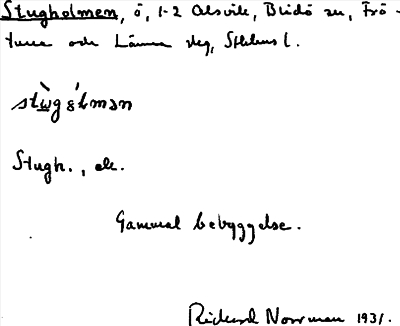 Stugholmen, ö, 1-2 Alsvik, Blidö sn, Frö-
tuna och Länna skg, Sthlms l.
stùgɷ́lmən
Stugh., ek.
Gammal bebyggelse.
Rickard Norrman 1931.